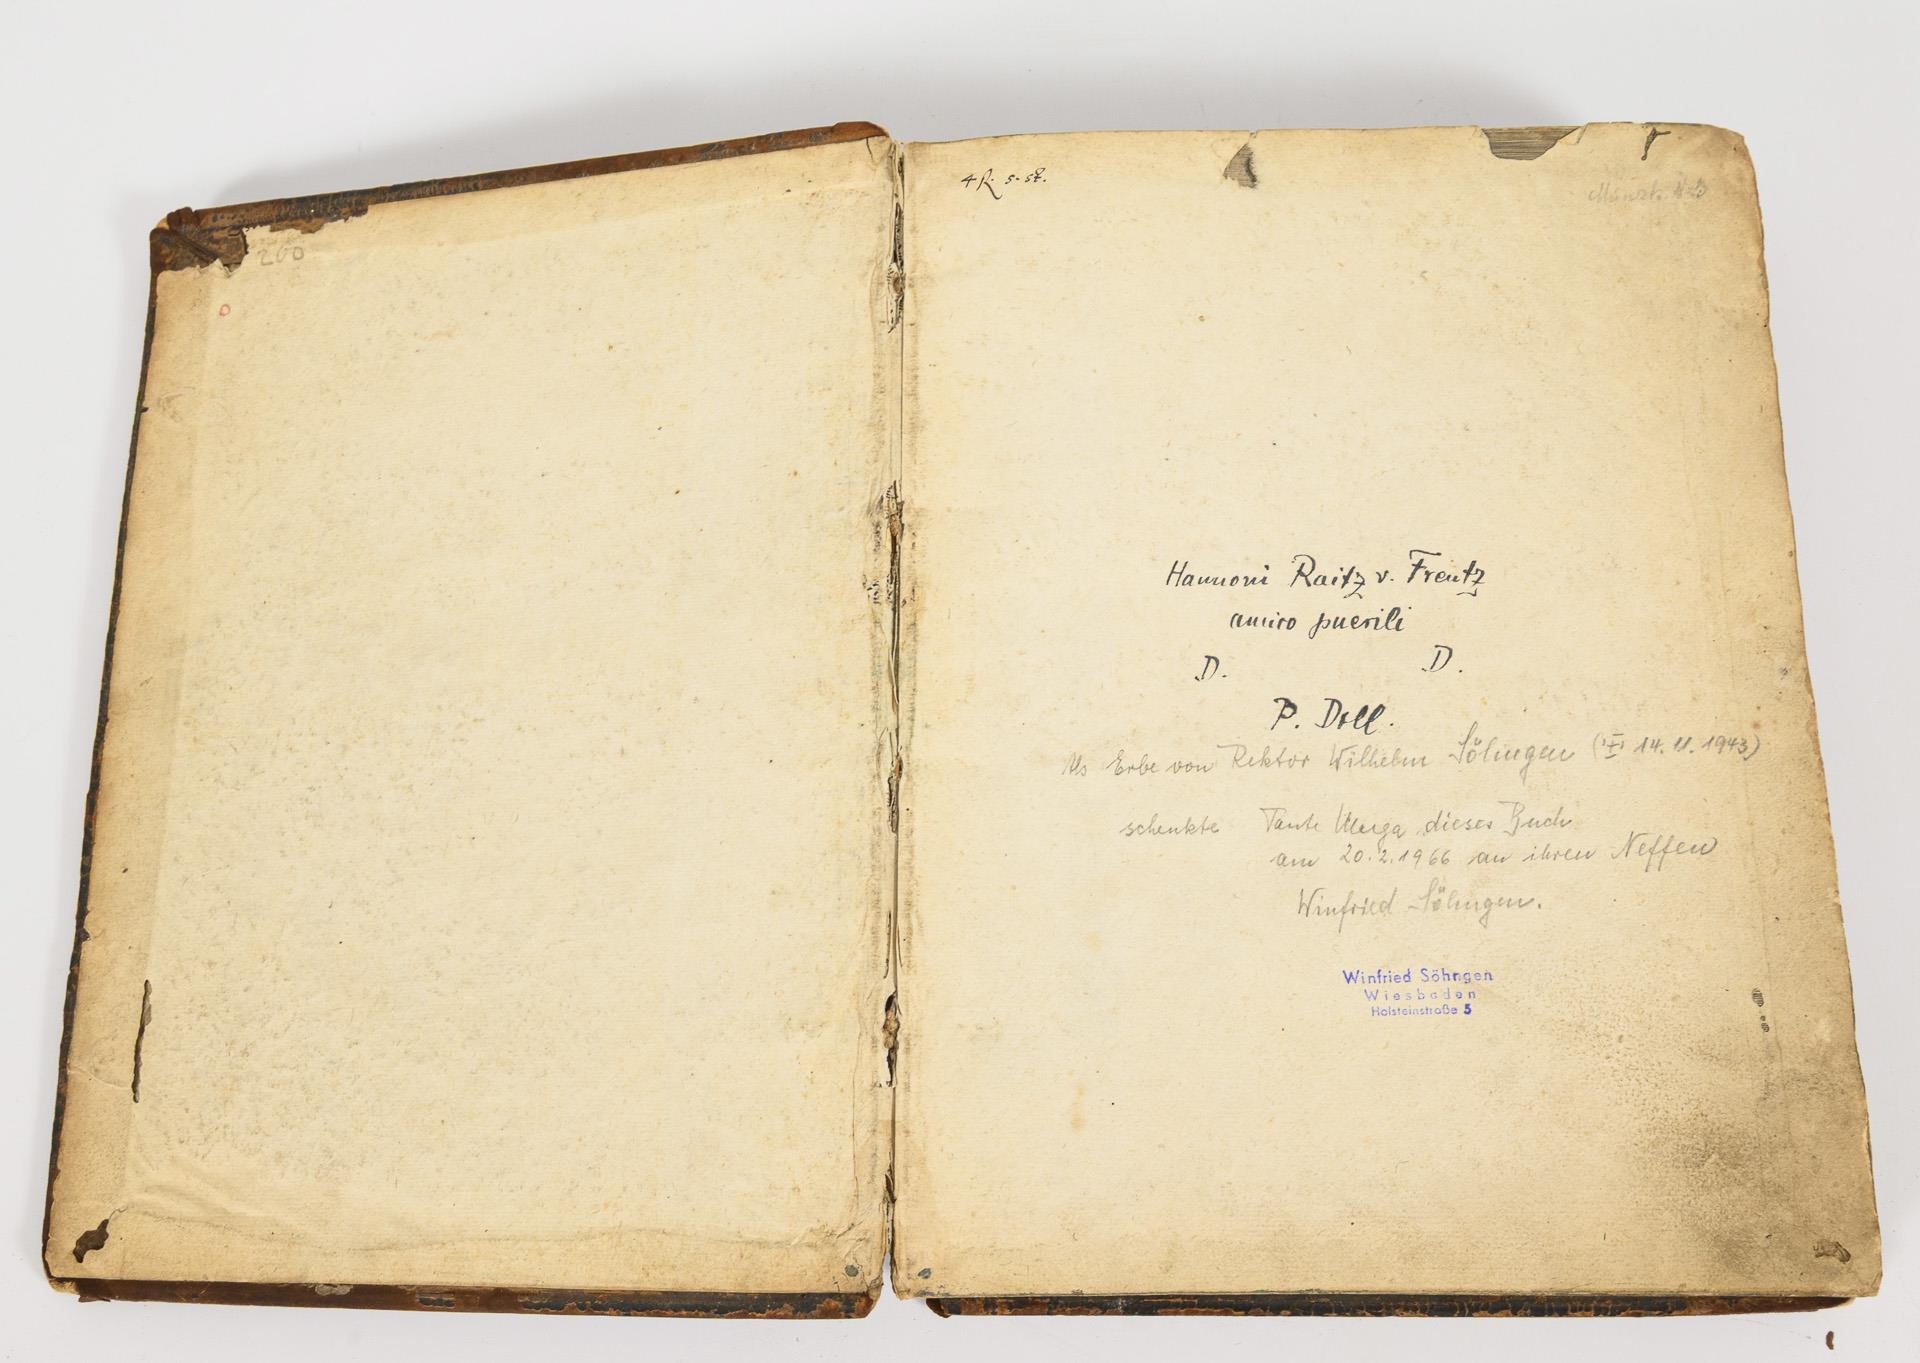 260
4 R. 5. 52.
Hannoni Raitz v. Frentz
amico puerili
D. D.
P. Doll.
Als Erbe von Rektor Wilhelm Söhngen ( 14. 11. 1943)
schenkte Tante dieses Buch
am 20.2.1966 an ihren Neffen
Winfried Söhngen.
Winfried Söhngen
Wiesbaden
Holsteinstraße 5